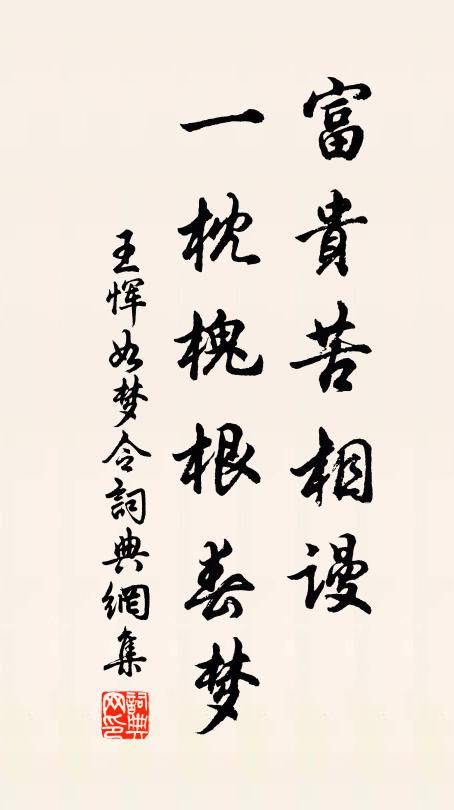 富貴苦相謾
一枕槐根春梦
王恽如梦令詞典網集
詞典
网印